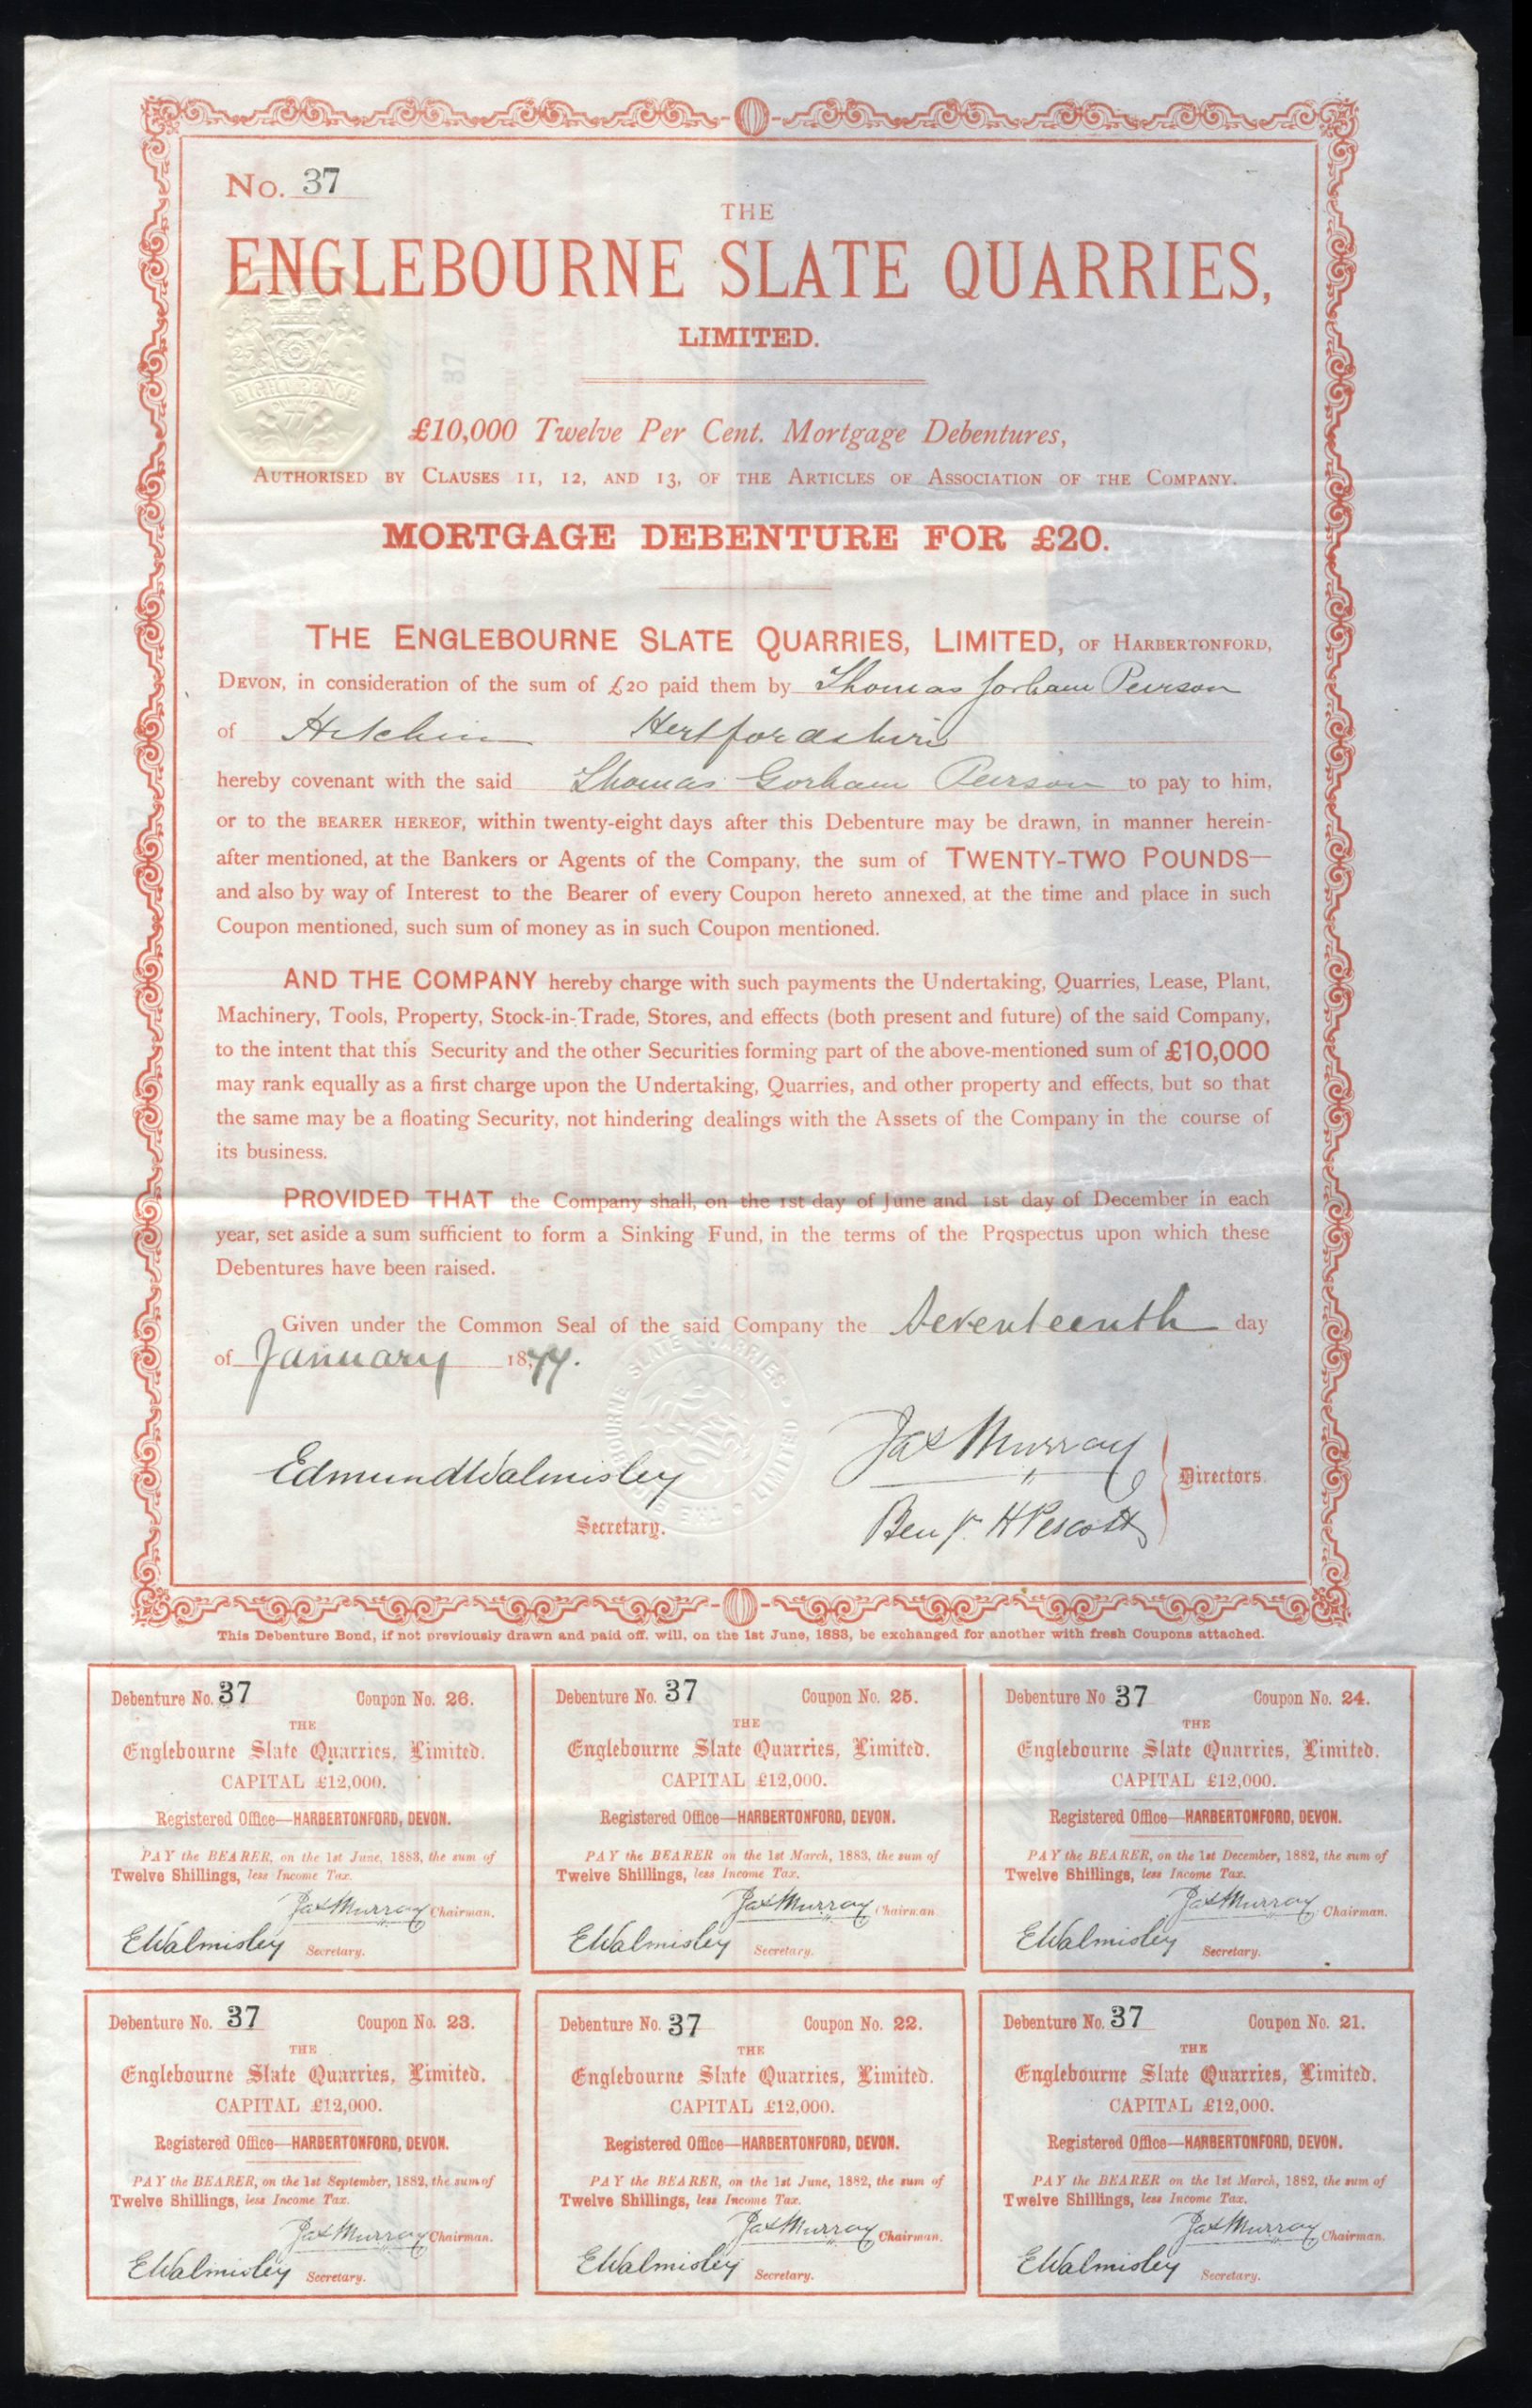 No. 37
THE
ENGLEBOURNE SLATE QUARRIES,
LIMITED.
25
EIGHT PENCE
77
£10,000 Twelve Per Cent. Mortgage Debentures,
AUTHORISED BY CLAUSES 11, 12, AND 13, OF THE ARTICLES OF ASSOCIATION OF THE COMPANY.
MORTGAGE DEBENTURE FOR £20.
THE ENGLEBOURNE SLATE QUARRIES, LIMITED, OF HARBERTONFORD,
DEVON, in consideration of the sum of £20 paid them by Thomas Gorham Peirson
of Hitchin Hertfordshire
hereby covenant with the said Thomas Gorham Peirson to pay to him,
or to the BEARER HEREOF, within twenty-eight days after this Debenture may be drawn, in manner herein-
after mentioned, at the Bankers or Agents of the Company, the sum of TWENTY-TWO POUNDS—
and also by way of Interest to the Bearer of every Coupon hereto annexed, at the time and place in such
Coupon mentioned, such sum of money as in such Coupon mentioned.
AND THE COMPANY hereby charge with such payments the Undertaking, Quarries, Lease, Plant,
Machinery, Tools, Property, Stock-in-Trade, Stores, and effects (both present and future) of the said Company,
to the intent that this Security and the other Securities forming part of the above-mentioned sum of £10,000
may rank equally as a first charge upon the Undertaking, Quarries, and other property and effects, but so that
the same may be a floating Security, not hindering dealings with the Assets of the Company in the course of
its business.
PROVIDED THAT the Company shall, on the 1st day of June and 1st day of December in each
year, set aside a sum sufficient to form a Sinking Fund, in the terms of the Prospectus upon which these
Debentures have been raised.
Given under the Common Seal of the said Company the Seventeenth day
of January 1877.
THE ENGLEBOURNE SLATE QUARRIES LIMITED
Jas Murray
Edmund Walmisley
Directors.
Benj. H Pescott
Secretary.
This Debenture Bond, if not previously drawn and paid off, will, on the 1st June, 1883, be exchanged for another with fresh Coupons attached.
Debenture No. 37 Coupon No. 26.
THE
Englebourne Slate Quarries, Limited.
CAPITAL £12,000.
Registered Office—HARBERTONFORD, DEVON.
PAY the BEARER, on the 1st June, 1883, the sum of
Twelve Shillings, less Income Tax.
Jas Murray Chairman.
E Walmisley Secretary.
Debenture No. 37 Coupon No. 25.
THE
Englebourne Slate Quarries, Limited.
CAPITAL £12,000.
Registered Office—HARBERTONFORD, DEVON.
PAY the BEARER on the 1st March, 1883, the sum of
Twelve Shillings, less Income Tax.
Jas Murray Chairman
E Walmisley Secretary.
Debenture No 37 Coupon No. 24.
THE
Englebourne Slate Quarries, Limited.
CAPITAL £12,000.
Registered Office—HARBERTONFORD, DEVON.
PAY the BEARER, on the 1st December, 1882, the sum of
Twelve Shillings, less Income Tax.
Jas Murray Chairman.
E Walmisley Secretary.
Debenture No. 37 Coupon No. 23.
THE
Englebourne Slate Quarries, Limited.
CAPITAL £12,000.
Registered Office—HARBERTONFORD, DEVON.
PAY the BEARER, on the 1st September, 1882, the sum of
Twelve Shillings, less Income Tax.
Jas Murray Chairman.
E Walmisley Secretary.
Debenture No. 37 Coupon No. 22.
THE
Englebourne Slate Quarries, Limited.
CAPITAL £12,000.
Registered Office—HARBERTONFORD, DEVON.
PAY the BEARER, on the 1st June, 1882, the sum of
Twelve Shillings, less Income Tax.
Jas Murray Chairman.
E Walmisley Secretary.
Debenture No. 37 Coupon No. 21.
THE
Englebourne Slate Quarries, Limited.
CAPITAL £12,000.
Registered Office—HARBERTONFORD, DEVON.
PAY the BEARER on the 1st March, 1882, the sum of
Twelve Shillings, less Income Tax.
Jas Murray Chairman.
E Walmisley Secretary.